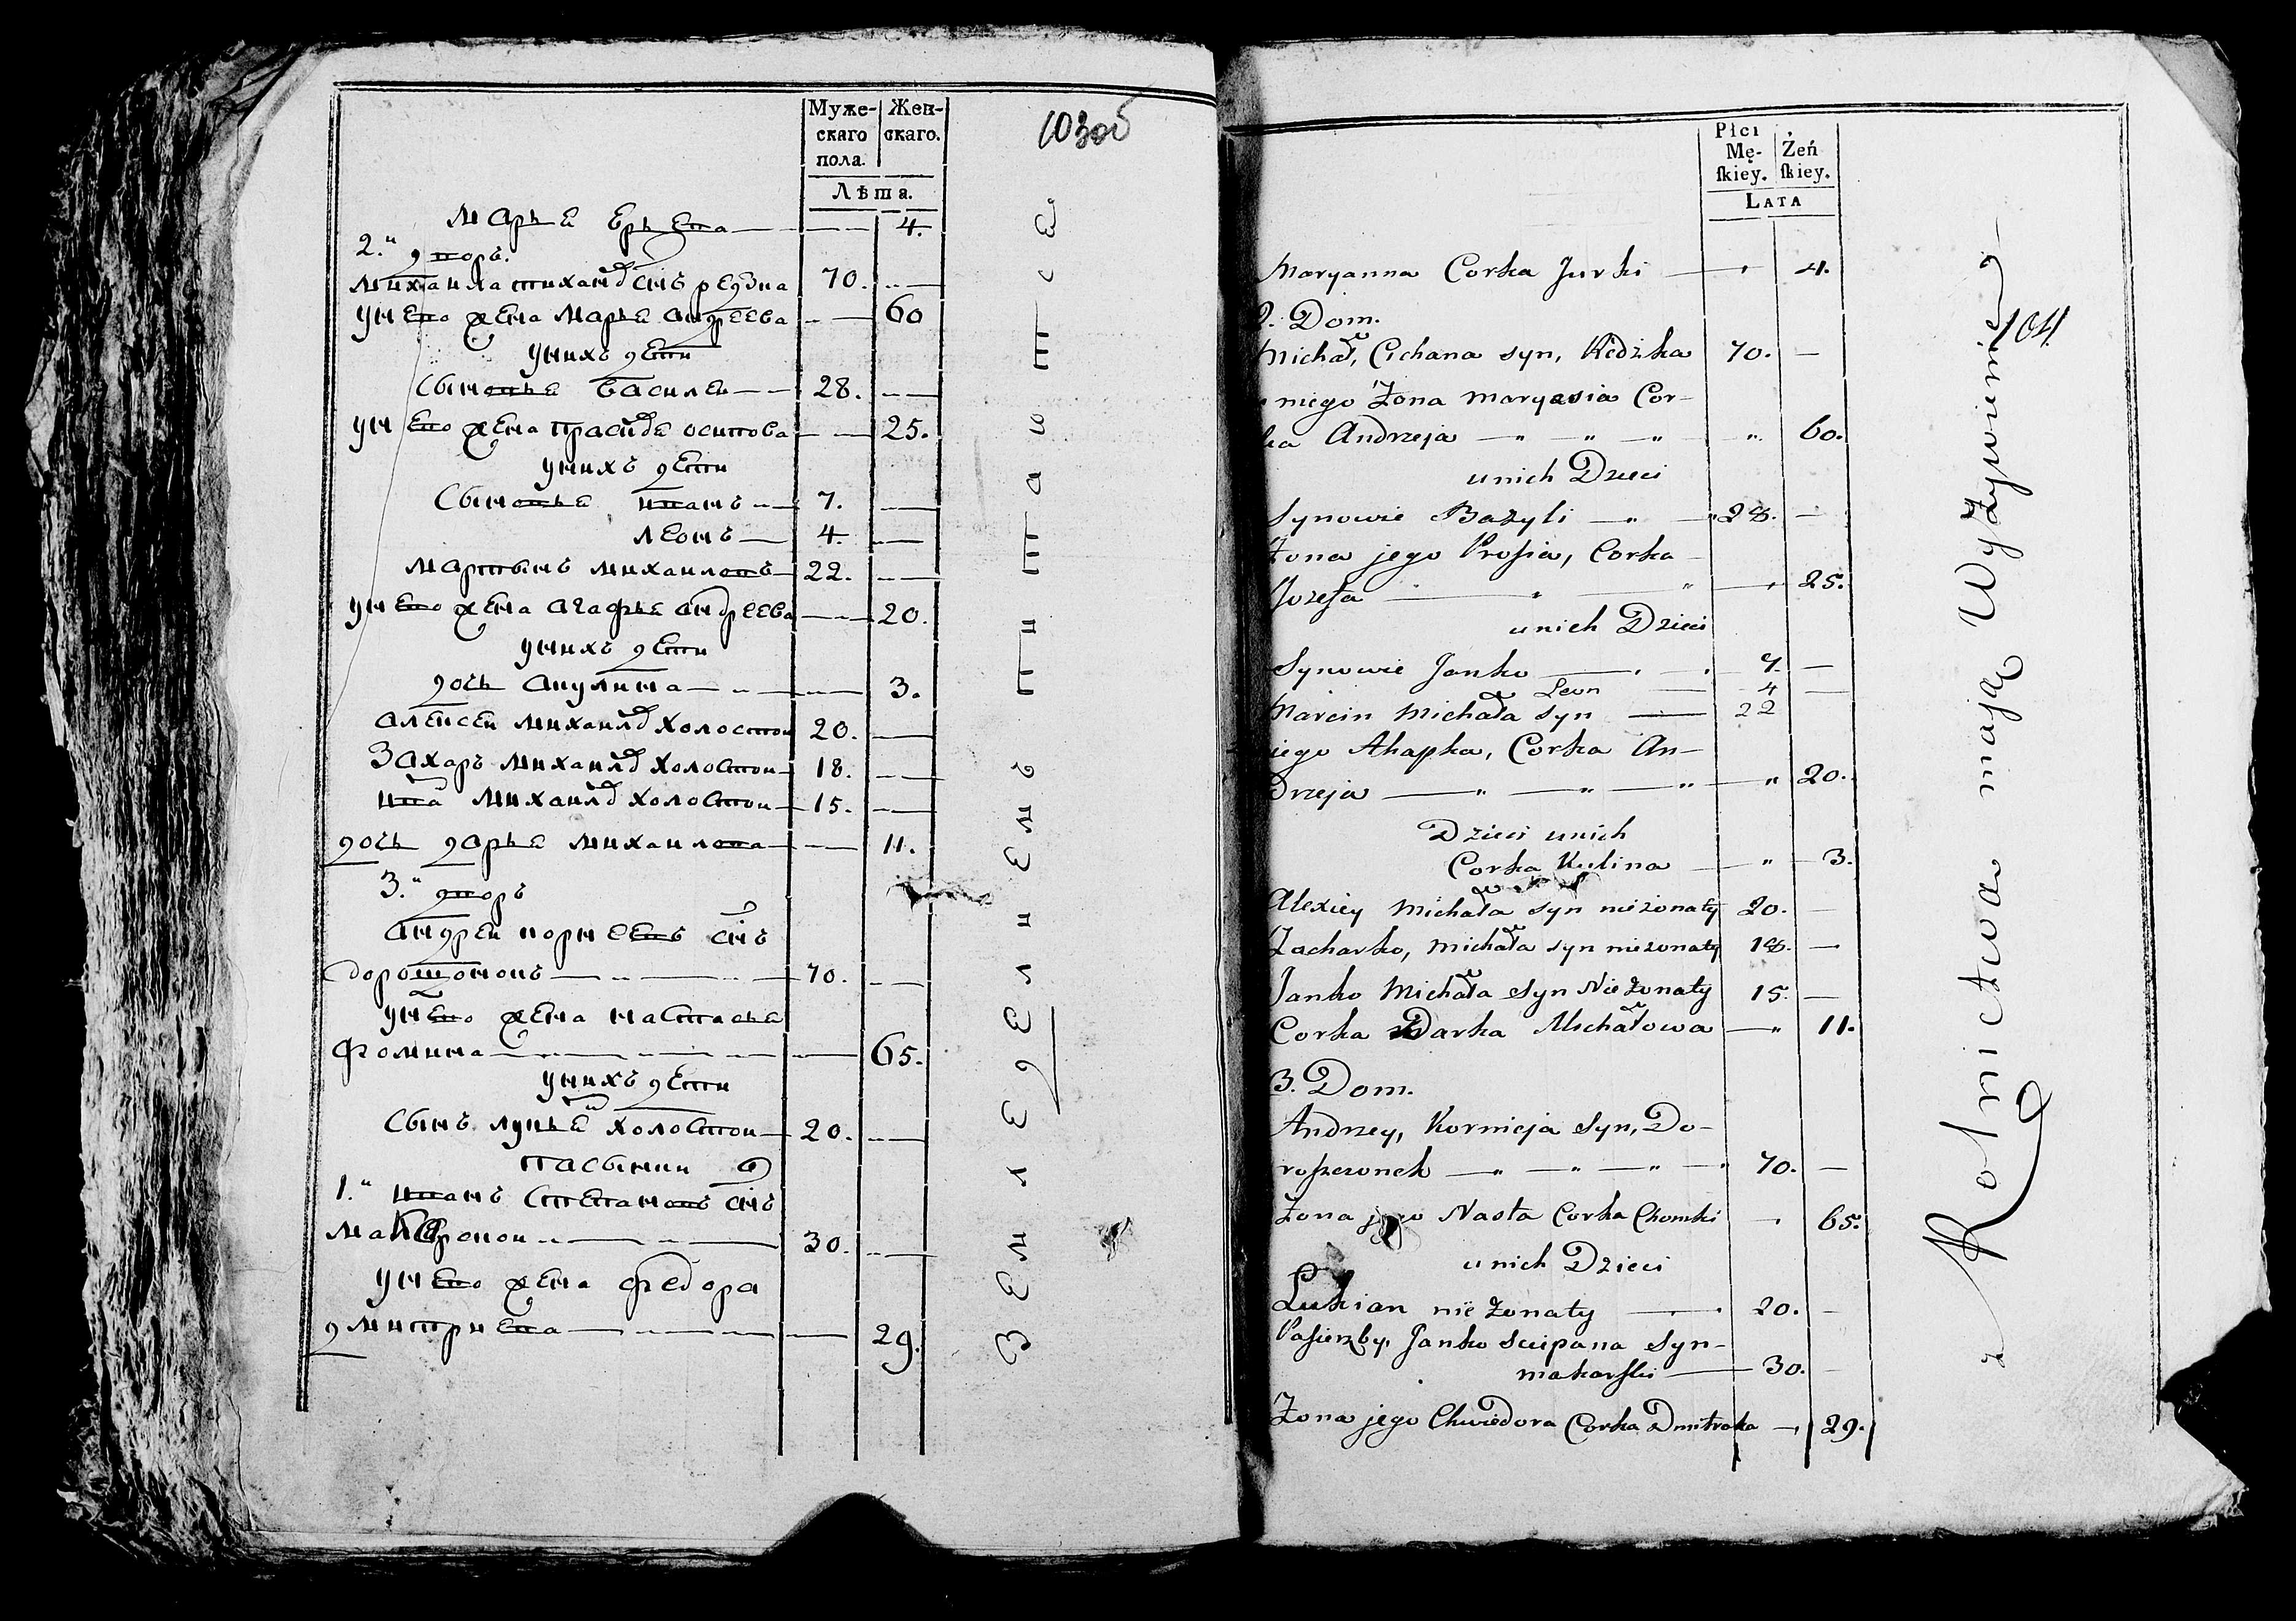 103об
Муже-
скаго
пола.
Жен-
скаго.
Лѣта.
Марья Юрьева — 4.
2. дворъ.
Михаила Тиханов сынъ Редзка 70. —
у нево жена Марья Андреева — 60
у нихъ дети
сыновья Василеи — 28. —
у нево жена Прасида Осипова — 25.
у нихъ дети
сыновья Иванъ — 7. —
Леонъ — 4. —
Мартынъ Михаиловъ — 22. —
у нево жена Агафья Андреева — 20.
у нихъ дети
дочь Акулина — 3.
Алексеи Михаилов холостои 20. —
Захаръ Михаилов холостои — 18. —
Ива Михаилов холостои — 15. —
дочь Дарья Михаилова — 11.
3. дворъ
Андреи Корнеевъ сынъ
Дорошонокъ — 70. —
у нево жена Настасья
Фомина — 65.
у нихъ дети
сынъ Лукья холостои — 20. —
пасынки
1. Иванъ Степановъ сынъ
30. —
у нево жена Федора
Дмитриева — 29.
Земледелиемъ питаютсе
104
Płci
Mę-
skiey.
Żeń
skiey.
LATA
Maryanna Corka Jurki — 4.
2. Dom.
Michał, Cichana syn, Redzka 70. —
niego Żona Maryasia Cor-
ka Andrzeja — " — " — " 60.
unich Dzieci
Synowie Bazyli — " — 28. —
Żona jego Prosia, Corka
Jozefa — " — " — 25.
unich Dzieci
Synowie Janko — 7. —
Leon — 4 —
Marcin Michała syn — 22
iego Ahapka, Corka An-
drzeja — " — " — " — " 20.
Dzieci unich
Corka Kulina — " — 3.
Alexiey Michała syn nieżonaty 20. —
Zacharko, Michała syn nieżonaty 18. —
Janko Michała syn Nieżonaty 15. —
Corka Darka Michałowa — " 11.
3. Dom.
Andrzey, Kornieja syn, Do-
roszonek — " — " — " — " 70. —
Żona jego Nasta Corka Chomki — 65.
unich Dzieci
Lukian nieżonaty — 20. —
Pasierzby, Janko Sciepana syn
Makarski — 30. —
Żona jego Chwiedora Corka Dmitraka — 29.
z Rolnictwa mają Wyżywienie